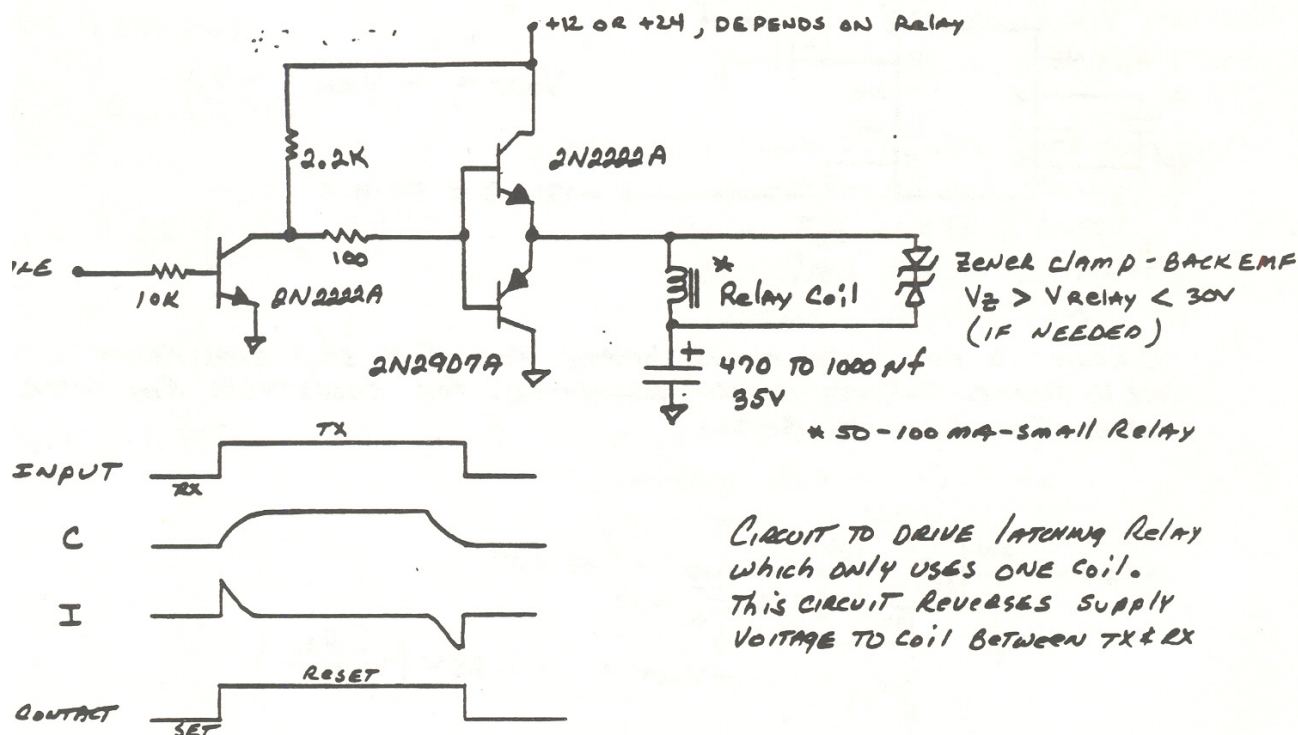 +12 OR +24, DEPENDS ON Relay
2.2K
2N2222A
100
10K
2N2222A
2N2907A
*
Relay Coil
ZENER CLAMP - BACK EMF
Vz > VRelay < 30V
(IF NEEDED)
+
470 TO 1000 µf
35V
* 50-100 mA-small Relay
INPUT
RX
TX
C
I
CONTACT
SET
RESET
CIRCUIT TO DRIVE LATCHING Relay
which ONLY USES ONE Coil.
This CIRCUIT REVERSES SUPPLY
VOLTAGE TO Coil BETWEEN TX & RX